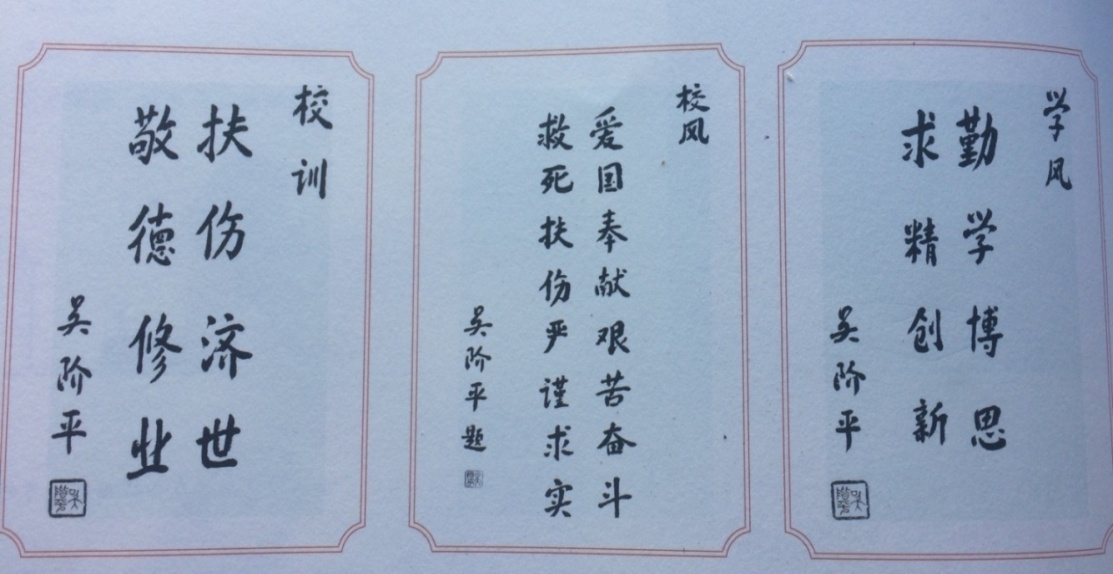 校训
扶伤济世
敬德修业
吴阶平
校风
爱国奉献艰苦奋斗
救死扶伤严谨求实
吴阶平题
学风
勤学博思
求精创新
吴阶平